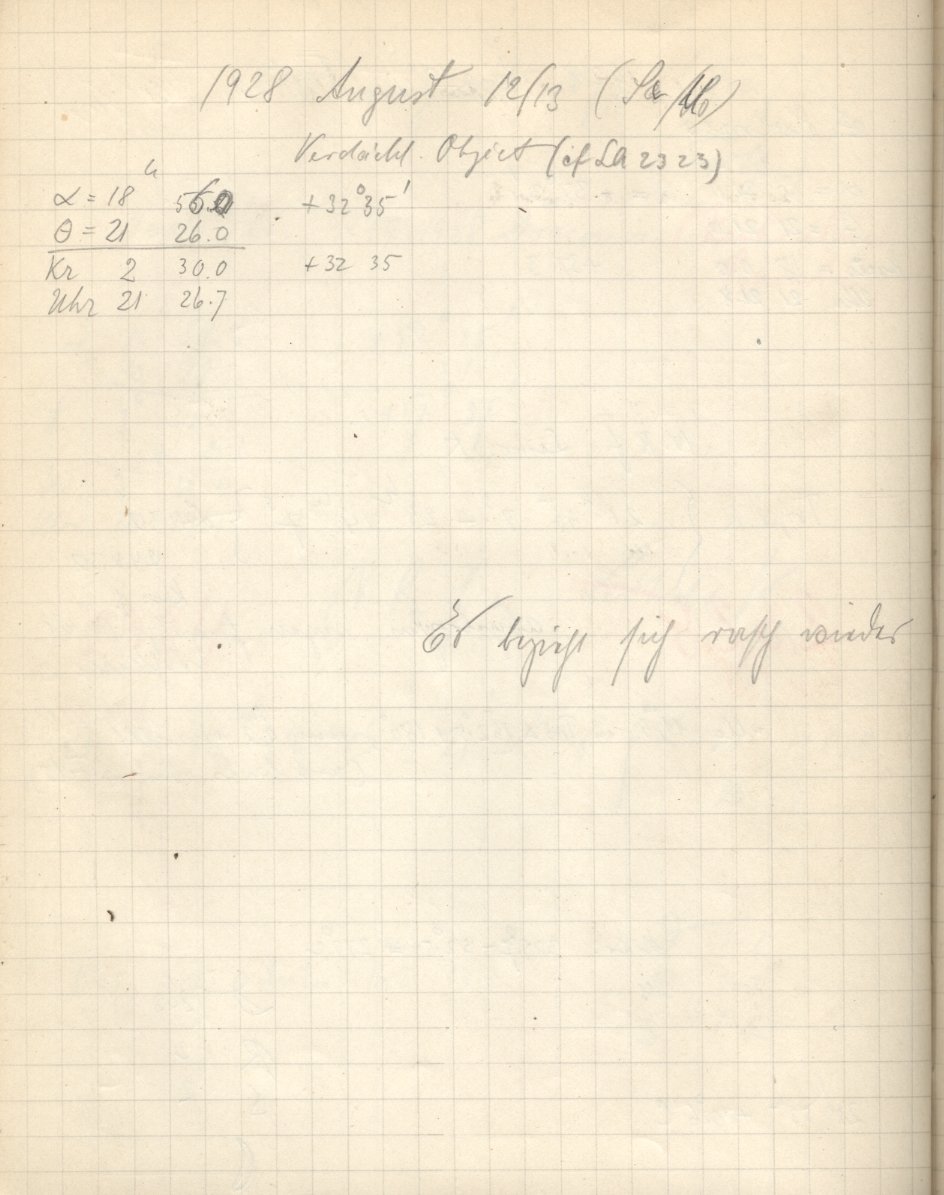 1928 August 12/13 (So/Mo)
Verdächt. Object (cf LA 2323)
α = 18ʰ 56.0 +32° 35'
θ = 21 26.0
Kr 2 30.0 +32 35
Uhr 21 26.7
Es bezieht sich rasch wieder